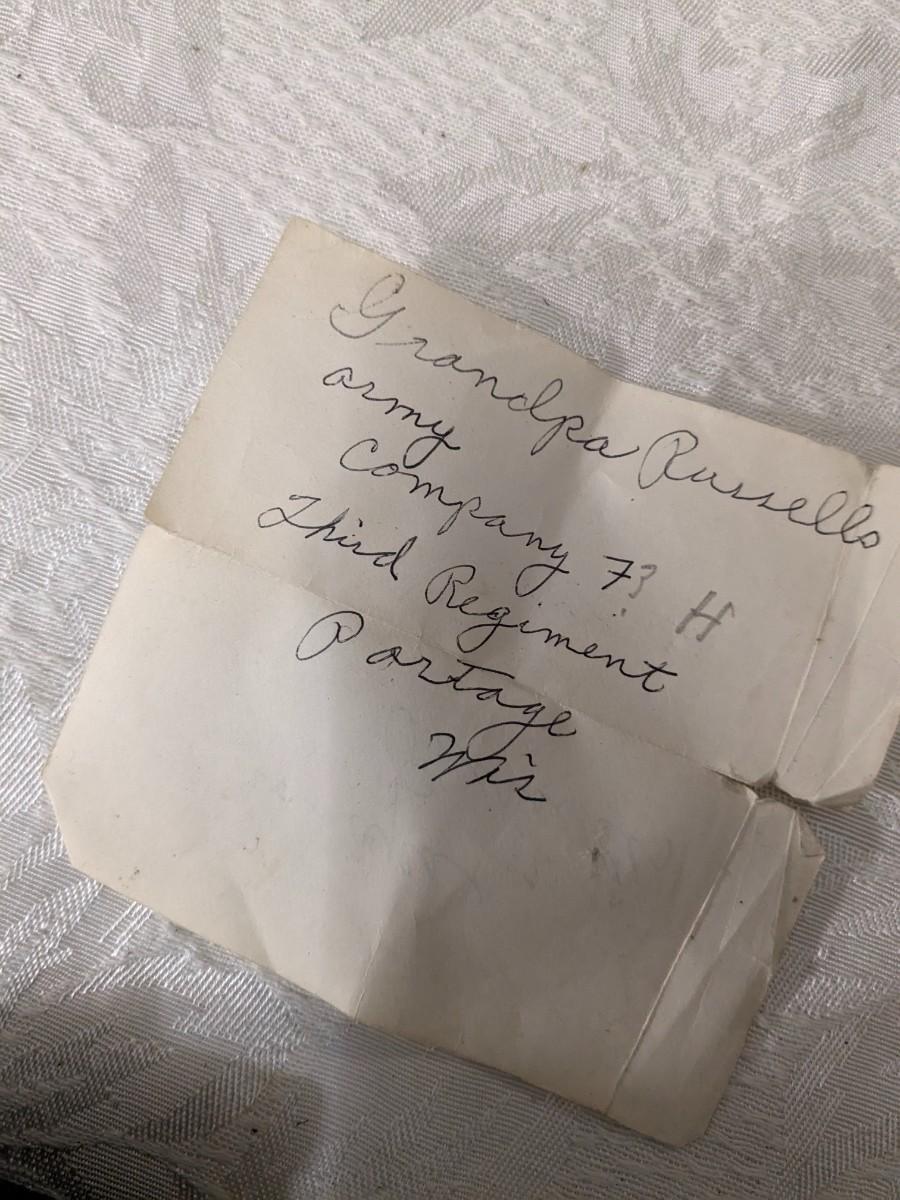 Grandpa Russells
army
Company 7? H
Third Regiment
Portage
Wis